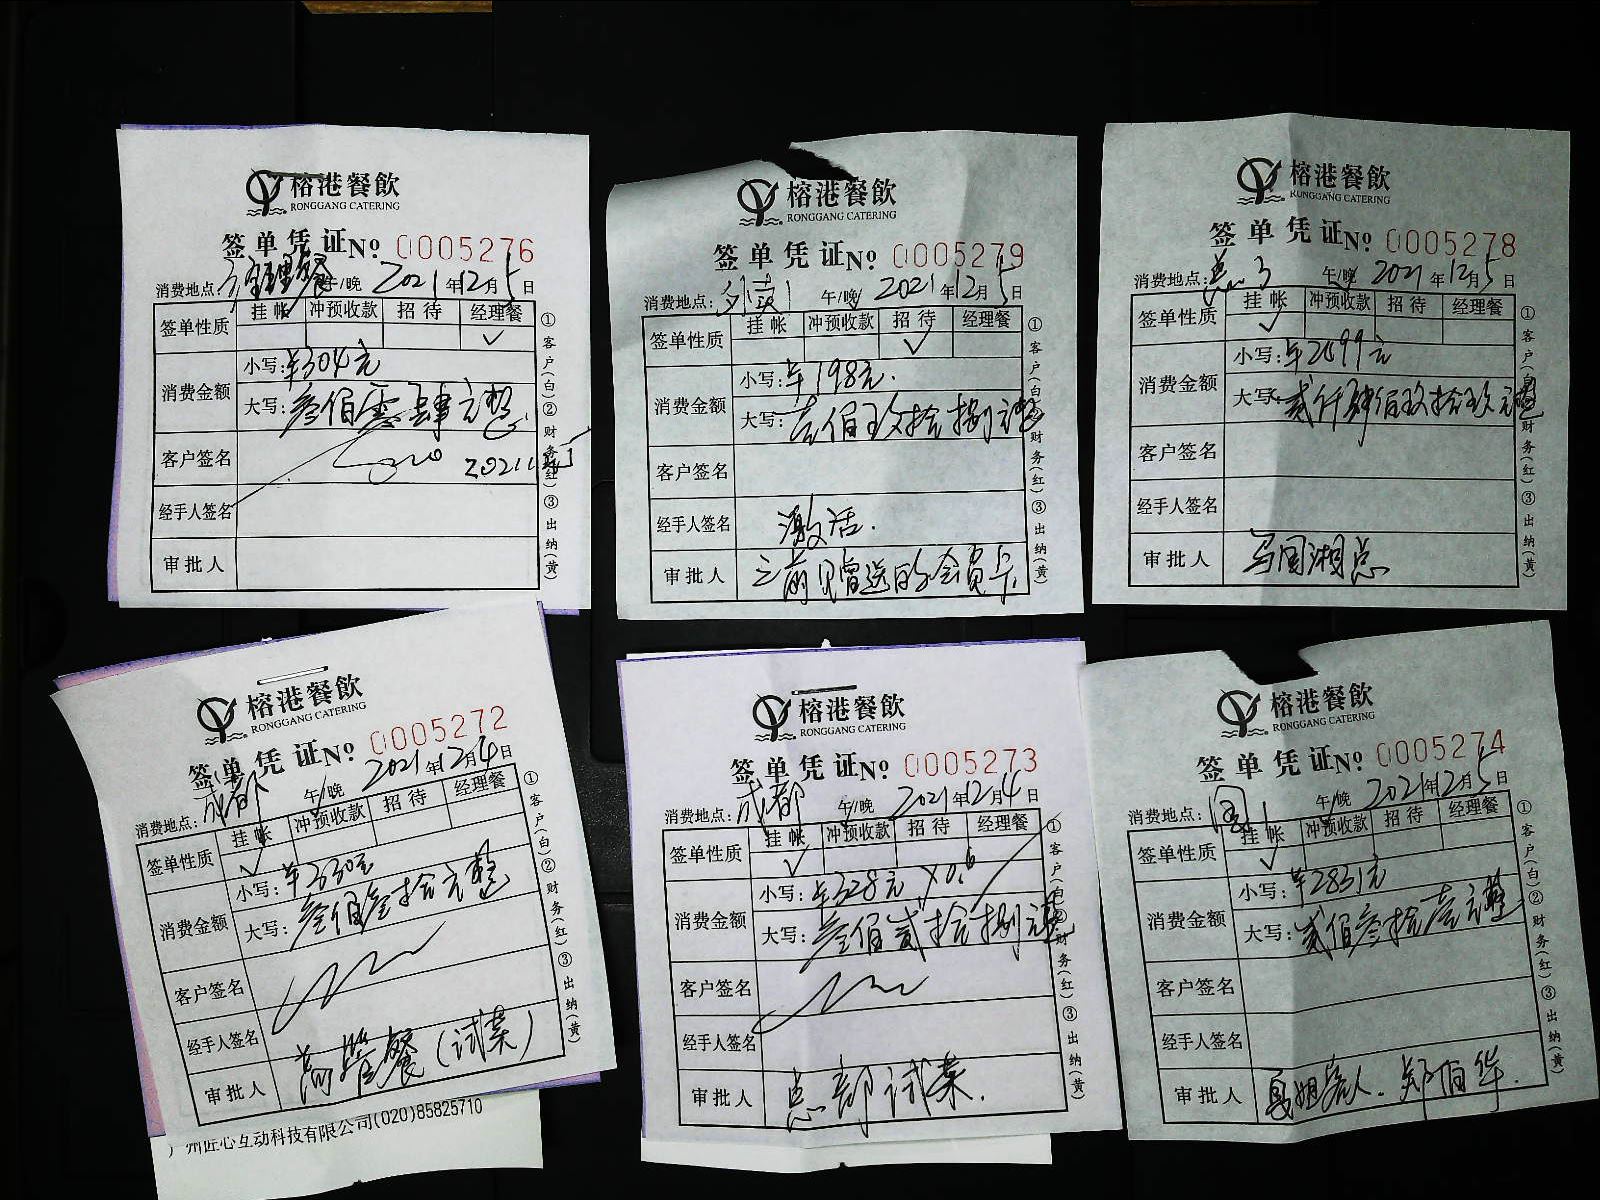 榕港餐飲
RONGGANG CATERING
签单凭证 № 0005276
消费地点: 午/晚 2021年12月5日
签单性质 挂帐 冲预收款 招待 经理餐
✓
消费金额 小写:¥304元
大写:叁佰零肆元整
客户签名
经手人签名
审批人
①客户(白)②财务(红)③出纳(黄)
榕港餐飲
RONGGANG CATERING
签单凭证 № 0005279
消费地点: 午/晚 2021年12月5日
签单性质 挂帐 冲预收款 招待 经理餐
✓
消费金额 小写:¥198元.
大写:壹佰玖拾捌元整
客户签名
经手人签名 激活.
审批人 之前赠送的会员卡
①客户(白)②财务(红)③出纳(黄)
榕港餐飲
RONGGANG CATERING
签单凭证 № 0005278
消费地点: 午/晚 2021年12月5日
签单性质 挂帐 冲预收款 招待 经理餐
✓
消费金额 小写:¥2499元
大写:贰仟肆佰玖拾玖元整
客户签名
经手人签名
审批人 马国湘总
①客户(白)②财务(红)③出纳(黄)
榕港餐飲
RONGGANG CATERING
签单凭证 № 0005272
消费地点:成都 午/晚 2021年12月4日
签单性质 挂帐 冲预收款 招待 经理餐
✓
消费金额 小写:¥330元
大写:叁佰叁拾元整
客户签名
经手人签名
审批人 高管餐(试菜)
①客户(白)②财务(红)③出纳(黄)
广州匠心互动科技有限公司(020)85825710
榕港餐飲
RONGGANG CATERING
签单凭证 № 0005273
消费地点:成都 午/晚 2021年12月4日
签单性质 挂帐 冲预收款 招待 经理餐
✓
消费金额 小写:¥328元 ×0.6
大写:叁佰贰拾捌元整
客户签名
经手人签名
审批人 总部试菜.
①客户(白)②财务(红)③出纳(黄)
榕港餐飲
RONGGANG CATERING
签单凭证 № 0005274
消费地点: 午/晚 2021年12月5日
签单性质 挂帐 冲预收款 招待 经理餐
✓
消费金额 小写:¥2831元
大写:贰佰叁拾壹元整
客户签名
经手人签名
审批人 夏姐客人.郑伯华.
①客户(白)②财务(红)③出纳(黄)